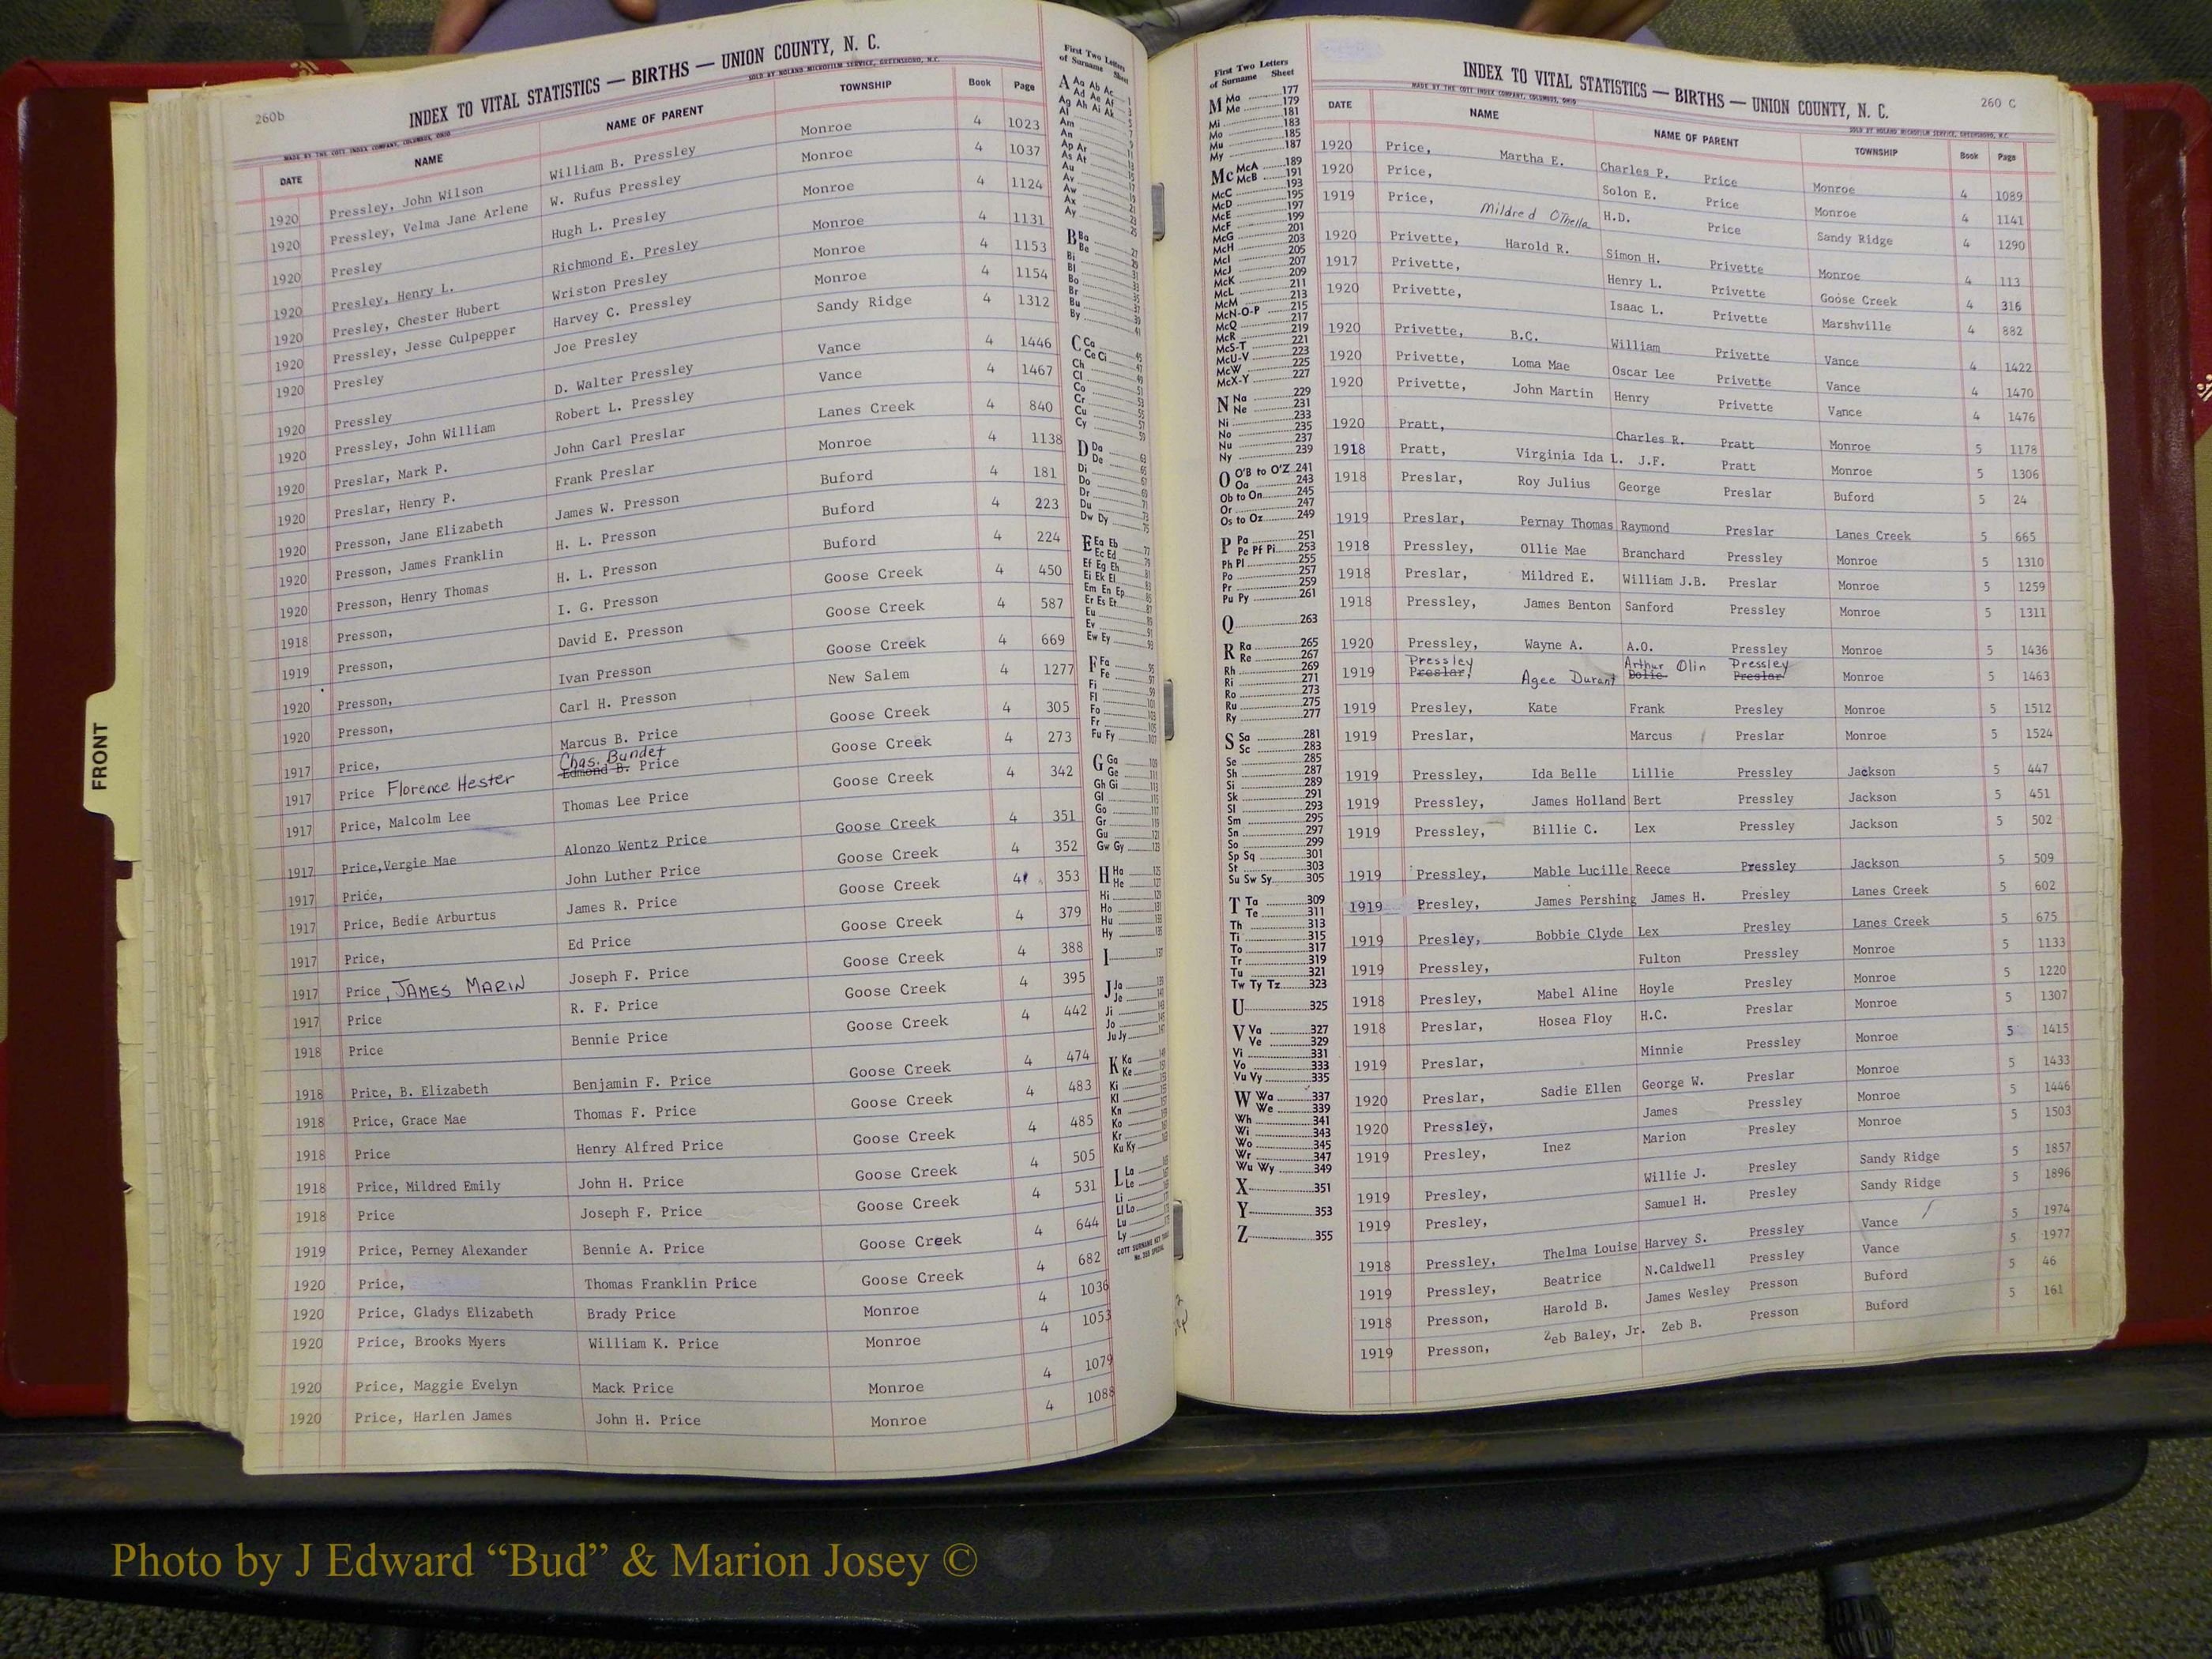 260b
INDEX TO VITAL STATISTICS — BIRTHS — UNION COUNTY, N. C.
MADE BY THE COTT INDEX COMPANY, COLUMBUS, OHIO SOLD BY NOLAND MICROFILM SERVICE, GREENSBORO, N.C.
DATE NAME NAME OF PARENT TOWNSHIP Book Page
1920 Pressley, John Wilson William B. Pressley Monroe 4 1023
1920 Pressley, Velma Jane Arlene W. Rufus Pressley Monroe 4 1037
1920 Presley Hugh L. Presley Monroe 4 1124
1920 Presley, Henry L. Richmond E. Presley Monroe 4 1131
1920 Presley, Chester Hubert Wriston Presley Monroe 4 1153
1920 Pressley, Jesse Culpepper Harvey C. Pressley Monroe 4 1154
1920 Presley Joe Presley Sandy Ridge 4 1312
1920 Pressley D. Walter Pressley Vance 4 1446
1920 Pressley, John William Robert L. Pressley Vance 4 1467
1920 Preslar, Mark P. John Carl Preslar Lanes Creek 4 840
1920 Preslar, Henry P. Frank Preslar Monroe 4 1138
1920 Presson, Jane Elizabeth James W. Presson Buford 4 181
1920 Presson, James Franklin H. L. Presson Buford 4 223
1920 Presson, Henry Thomas H. L. Presson Buford 4 224
1918 Presson, I. G. Presson Goose Creek 4 450
1919 Presson, David E. Presson Goose Creek 4 587
1920 Presson, Ivan Presson Goose Creek 4 669
1920 Presson, Carl H. Presson New Salem 4 1277
1917 Price, Marcus B. Price Goose Creek 4 305
1917 Price Florence Hester Chas. Bundet Edmond B. Price Goose Creek 4 273
1917 Price, Malcolm Lee Thomas Lee Price Goose Creek 4 342
1917 Price,Vergie Mae Alonzo Wentz Price Goose Creek 4 351
1917 Price, John Luther Price Goose Creek 4 352
1917 Price, Bedie Arburtus James R. Price Goose Creek 4 353
1917 Price, Ed Price Goose Creek 4 379
1917 Price, JAMES MARIN Joseph F. Price Goose Creek 4 388
1917 Price R. F. Price Goose Creek 4 395
1918 Price Bennie Price Goose Creek 4 442
1918 Price, B. Elizabeth Benjamin F. Price Goose Creek 4 474
1918 Price, Grace Mae Thomas F. Price Goose Creek 4 483
1918 Price Henry Alfred Price Goose Creek 4 485
1918 Price, Mildred Emily John H. Price Goose Creek 4 505
1918 Price Joseph F. Price Goose Creek 4 531
1919 Price, Perney Alexander Bennie A. Price Goose Creek 4 644
1920 Price, Thomas Franklin Price Goose Creek 4 682
1920 Price, Gladys Elizabeth Brady Price Monroe 4 1036
1920 Price, Brooks Myers William K. Price Monroe 4 1053
1920 Price, Maggie Evelyn Mack Price Monroe 4 1079
1920 Price, Harlen James John H. Price Monroe 4 1088
FRONT
First Two Letters
of Surname Sheet
A Aa Ab Ac 1
Ad Ae Af 3
Ag Ah Ai Ak 5
Al 7
Am 9
An 11
Ap Ar 13
As At 15
Au 17
Av 19
Aw 21
Ax 23
Ay 25
B Ba 27
Be 29
Bi 31
Bl 33
Bo 35
Br 37
Bu 39
By 41
C Ca 45
Ce Ci 47
Ch 49
Cl 51
Co 53
Cr 55
Cu 57
Cy 59
D Da 63
De 65
Di 67
Do 69
Dr 71
Du 73
Dw Dy 75
E Ea Eb 77
Ec Ed 79
Ef Eg Eh 81
Ei Ek El 83
Em En Ep 85
Er Es Et 87
Eu 89
Ev 91
Ew Ey 93
F Fa 95
Fe 97
Fi 99
Fl 101
Fo 103
Fr 105
Fu Fy 107
G Ga 109
Ge 111
Gh Gi 113
Gl 115
Go 117
Gr 119
Gu 121
Gw Gy 123
H Ha 125
He 127
Hi 129
Ho 131
Hu 133
Hy 135
I 137
J Ja
Je
Ji
Jo
Ju Jy
K Ka
Ke
Ki
Kl
Kn
Ko
Kr
Ku Ky
L La
Le
Li
Ll Lo
Lu
Ly
First Two Letters
of Surname Sheet
M Ma 177
Me 179
Mi 181
Mo 183
Mu 185
My 187
Mc McA 189
McB 191
McC 193
McD 195
McE 197
McF 199
McG 201
McH 203
McI 205
McJ 207
McK 209
McL 211
McM 213
McN-O-P 215
McQ 217
McR 219
McS-T 221
McU-V 223
McW 225
McX-Y 227
N Na 229
Ne 231
Ni 233
No 235
Nu 237
Ny 239
O O'B to O'Z 241
Oa 243
Ob to On 245
Or 247
Os to Oz 249
P Pa 251
Pe Pf Pi 253
Ph Pl 255
Po 257
Pr 259
Pu Py 261
Q 263
R Ra 265
Re 267
Rh 269
Ri 271
Ro 273
Ru 275
Ry 277
S Sa 281
Sc 283
Se 285
Sh 287
Si 289
Sk 291
Sl 293
Sm 295
Sn 297
So 299
Sp Sq 301
St 303
Su Sw Sy 305
T Ta 309
Te 311
Th 313
Ti 315
To 317
Tr 319
Tu 321
Tw Ty Tz 323
U 325
V Va 327
Ve 329
Vi 331
Vo 333
Vu Vy 335
W Wa 337
We 339
Wh 341
Wi 343
Wo 345
Wr 347
Wu Wy 349
X 351
Y 353
Z 355
INDEX TO VITAL STATISTICS — BIRTHS — UNION COUNTY, N. C. 260 C
MADE BY THE COTT INDEX COMPANY, COLUMBUS, OHIO SOLD BY NOLAND MICROFILM SERVICE, GREENSBORO, N.C.
DATE NAME NAME OF PARENT TOWNSHIP Book Page
1920 Price, Martha E. Charles P. Price Monroe 4 1089
1920 Price, Solon E. Price Monroe 4 1141
1919 Price, Mildred OThella H.D. Price Sandy Ridge 4 1290
1920 Privette, Harold R. Simon H. Privette Monroe 4 113
1917 Privette, Henry L. Privette Goose Creek 4 316
1920 Privette, Isaac L. Privette Marshville 4 882
1920 Privette, B.C. William Privette Vance 4 1422
1920 Privette, Loma Mae Oscar Lee Privette Vance 4 1470
1920 Privette, John Martin Henry Privette Vance 4 1476
1920 Pratt, Charles R. Pratt Monroe 5 1178
1918 Pratt, Virginia Ida L. J.F. Pratt Monroe 5 1306
1918 Preslar, Roy Julius George Preslar Buford 5 24
1919 Preslar, Pernay Thomas Raymond Preslar Lanes Creek 5 665
1918 Pressley, Ollie Mae Branchard Pressley Monroe 5 1310
1918 Preslar, Mildred E. William J.B. Preslar Monroe 5 1259
1918 Pressley, James Benton Sanford Pressley Monroe 5 1311
1920 Pressley, Wayne A. A.O. Pressley Monroe 5 1436
Pressley Arthur Olin Pressley
1919 Preslar, Agee Durant Dolie Preslar Monroe 5 1463
1919 Presley, Kate Frank Presley Monroe 5 1512
1919 Preslar, Marcus Preslar Monroe 5 1524
1919 Pressley, Ida Belle Lillie Pressley Jackson 5 447
1919 Pressley, James Holland Bert Pressley Jackson 5 451
1919 Pressley, Billie C. Lex Pressley Jackson 5 502
1919 Pressley, Mable Lucille Reece Pressley Jackson 5 509
1919 Presley, James Pershing James H. Presley Lanes Creek 5 602
1919 Presley, Bobbie Clyde Lex Presley Lanes Creek 5 675
1919 Pressley, Fulton Pressley Monroe 5 1133
1918 Presley, Mabel Aline Hoyle Presley Monroe 5 1220
1918 Preslar, Hosea Floy H.C. Preslar Monroe 5 1307
1919 Preslar, Minnie Pressley Monroe 5 1415
1920 Preslar, Sadie Ellen George W. Preslar Monroe 5 1433
1920 Pressley, James Pressley Monroe 5 1446
1919 Presley, Inez Marion Presley Monroe 5 1503
1919 Presley, Willie J. Presley Sandy Ridge 5 1857
1919 Presley, Samuel H. Presley Sandy Ridge 5 1896
1918 Pressley, Thelma Louise Harvey S. Pressley Vance 5 1974
1919 Pressley, Beatrice N.Caldwell Pressley Vance 5 1977
1918 Presson, Harold B. James Wesley Presson Buford 5 46
1919 Presson, Zeb Baley, Jr. Zeb B. Presson Buford 5 161
Photo by J Edward “Bud” & Marion Josey ©